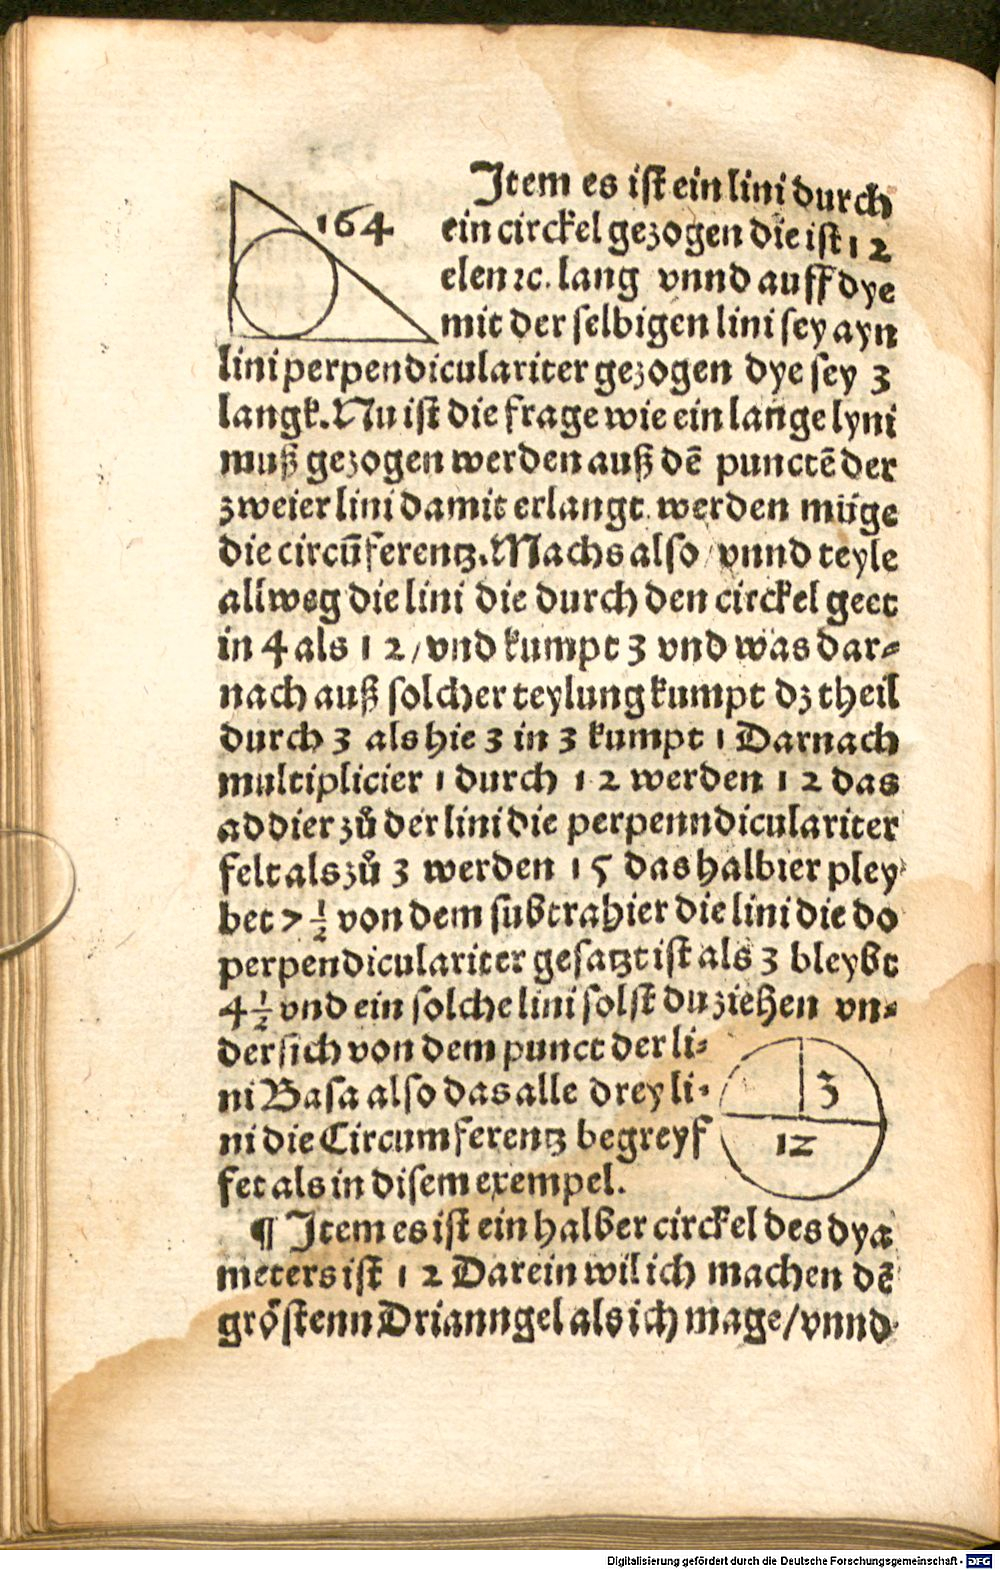 164
Item es ist ein lini durch
ein circkel gezogen die ist 12
elen ꝛc. lang vnnd auff dye
mit der selbigen lini sey ayn
lini perpendiculariter gezogen dye sey 3
langk. Nu ist die frage wie ein lange lyni
muß gezogen werden auß dē punctē der
zweier lini damit erlangt werden müge
die circūferentz. Machs also / vnnd teyle
allweg die lini die durch den circkel geet
in 4 als 12 / vnd kumpt 3 vnd was dar⸗
nach auß solcher teylung kumpt dz theil
durch 3 als hie 3 in 3 kumpt 1 Darnach
multiplicier 1 durch 12 werden 12 das
addier zů der lini die perpenndiculariter
felt als zů 3 werden 15 das halbier pley
bet 7 1/2 von dem subtrahier die lini die do
perpendiculariter gesatzt ist als 3 bleybt
4 1/2 vnd ein solche lini solst du ziehen vn⸗
dersich von dem punct der li⸗
ni Basa also das alle drey li⸗
ni die Circumferentz begreyf
fet als in disem exempel.
3
12
¶ Item es ist ein halber circkel des dya
meters ist 12 Darein wil ich machen dē
gröstenn Drianngel als ich mage / vnnd
Digitalisierung gefördert durch die Deutsche Forschungsgemeinschaft - DFG